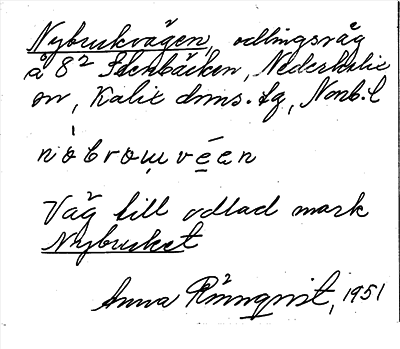 Nybrukvägen, odlingsväg
å 8² Stenbäcken, Nederkalix
sn, Kalix dms. tg, Norrb. l
nòbrouvéen
Väg till odlad mark
Nybruket
Anna Rönnqvist, 1951